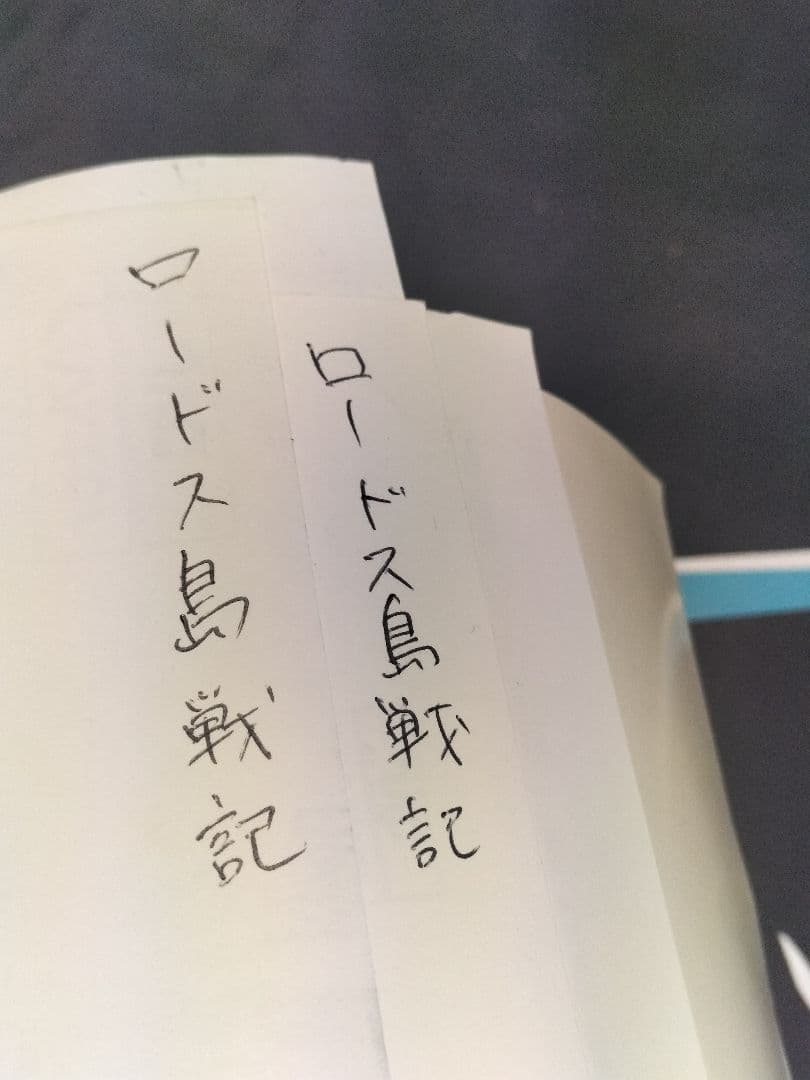 ロードス島戦記
ロードス島戦記